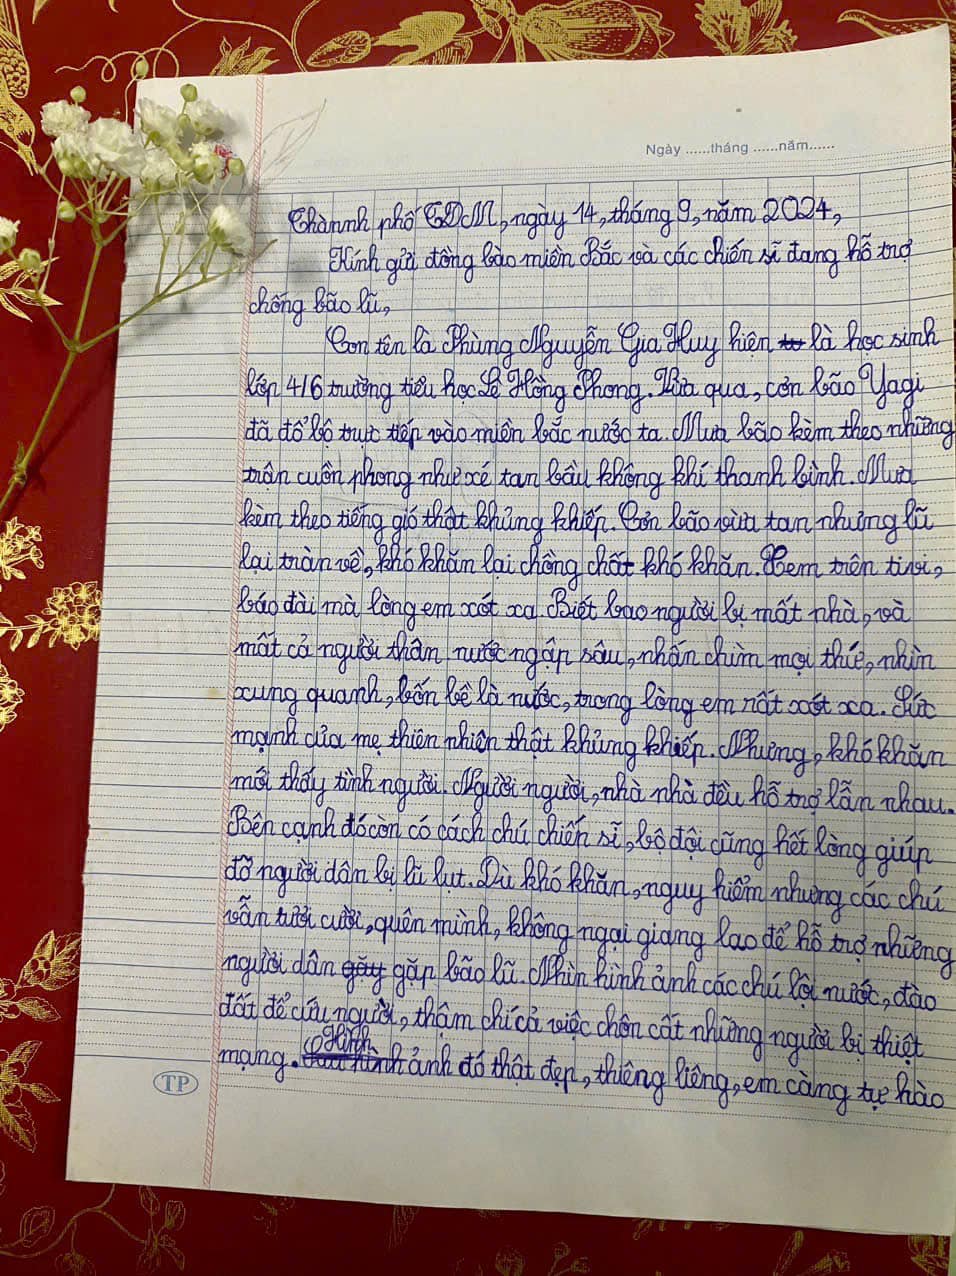 Ngày ......tháng ......năm......
Thành phố TDM, ngày 14, tháng 9, năm 2024,
Kính gửi đồng bào miền Bắc và các chiến sĩ đang hỗ trợ
chống bão lũ,
Con tên là Phùng Nguyễn Gia Huy hiện là học sinh
lớp 4/6 trường tiểu học Lê Hồng Phong. Vừa qua, cơn bão Yagi
đã đổ bộ trực tiếp vào miền bắc nước ta. Mưa bão kèm theo những
trận cuồn phong như xé tan bầu không khí thanh bình. Mưa
kèm theo tiếng gió thật khủng khiếp. Cơn bão vừa tan nhưng lũ
lại tràn về, khó khăn lại chồng chất khó khăn. Xem trên tivi,
báo đài mà lòng em xót xa. Biết bao người bị mất nhà, và
mất cả người thân nước ngập sâu, nhấn chìm mọi thứ, nhìn
xung quanh, bốn bề là nước, trong lòng em rất xót xa. Sức
mạnh của mẹ thiên nhiên thật khủng khiếp. Nhưng, khó khăn
mới thấy tình người. Người người, nhà nhà đều hỗ trợ lẫn nhau.
Bên cạnh đó còn có cách chú chiến sĩ, bộ đội cũng hết lòng giúp
đỡ người dân bị lũ lụt. Dù khó khăn, nguy hiểm nhưng các chú
vẫn tười cười, quên mình, không ngại giang lao để hỗ trợ những
người dân gặp bão lũ. Nhìn hình ảnh các chú lội nước, đào
đất để cứu người, thậm chí cả việc chôn cất những người bị thiệt
mạng. Hình ảnh đó thật đẹp, thiêng liêng, em càng tự hào
TP